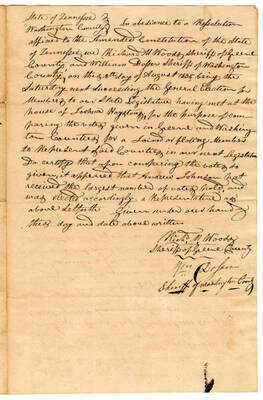 State of Tennessee }
Washington County } In obedience to a Resolution
affixed to the Amended Constitution of the State
of Tennessee, we Richard M Woods, Sheriff of Greene
County, and William Dosser Sheriff of Washington
County, on this day of August being the
Saturday next succeeding the General Election for
Members to our State Legislature having met at the
house of Joshua for the purpose of com-
paring the votes given in Greene and Washing-
ton Counties for a Joint or floating Member
to Represent said Counties in our next Legislature
Do certify that upon comparing the votes so
given, it appeared that Andrew Johnson had
received the largest number of votes polled and
was elected accordingly a Representative as
above set forth. Given under our hands
this day and date above written
Richd. M. Woods
Sheriff of Greene County
Wm Dosser
Sheriff of Washington County